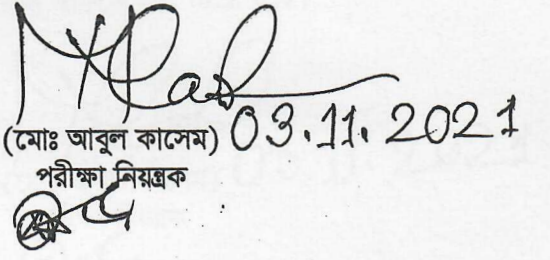 (মোঃ আবুল কাসেম) 03.11.2021
পরীক্ষা নিয়ন্ত্রক